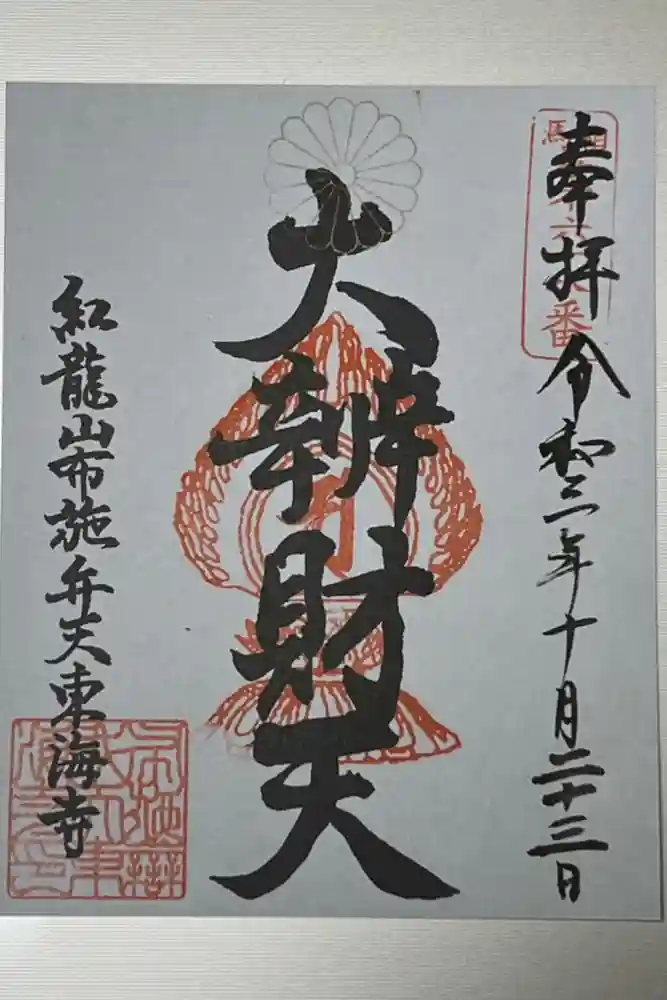 奉拝 令和三年十月二十三日
番
大辨財天
紅龍山布施弁天東海寺